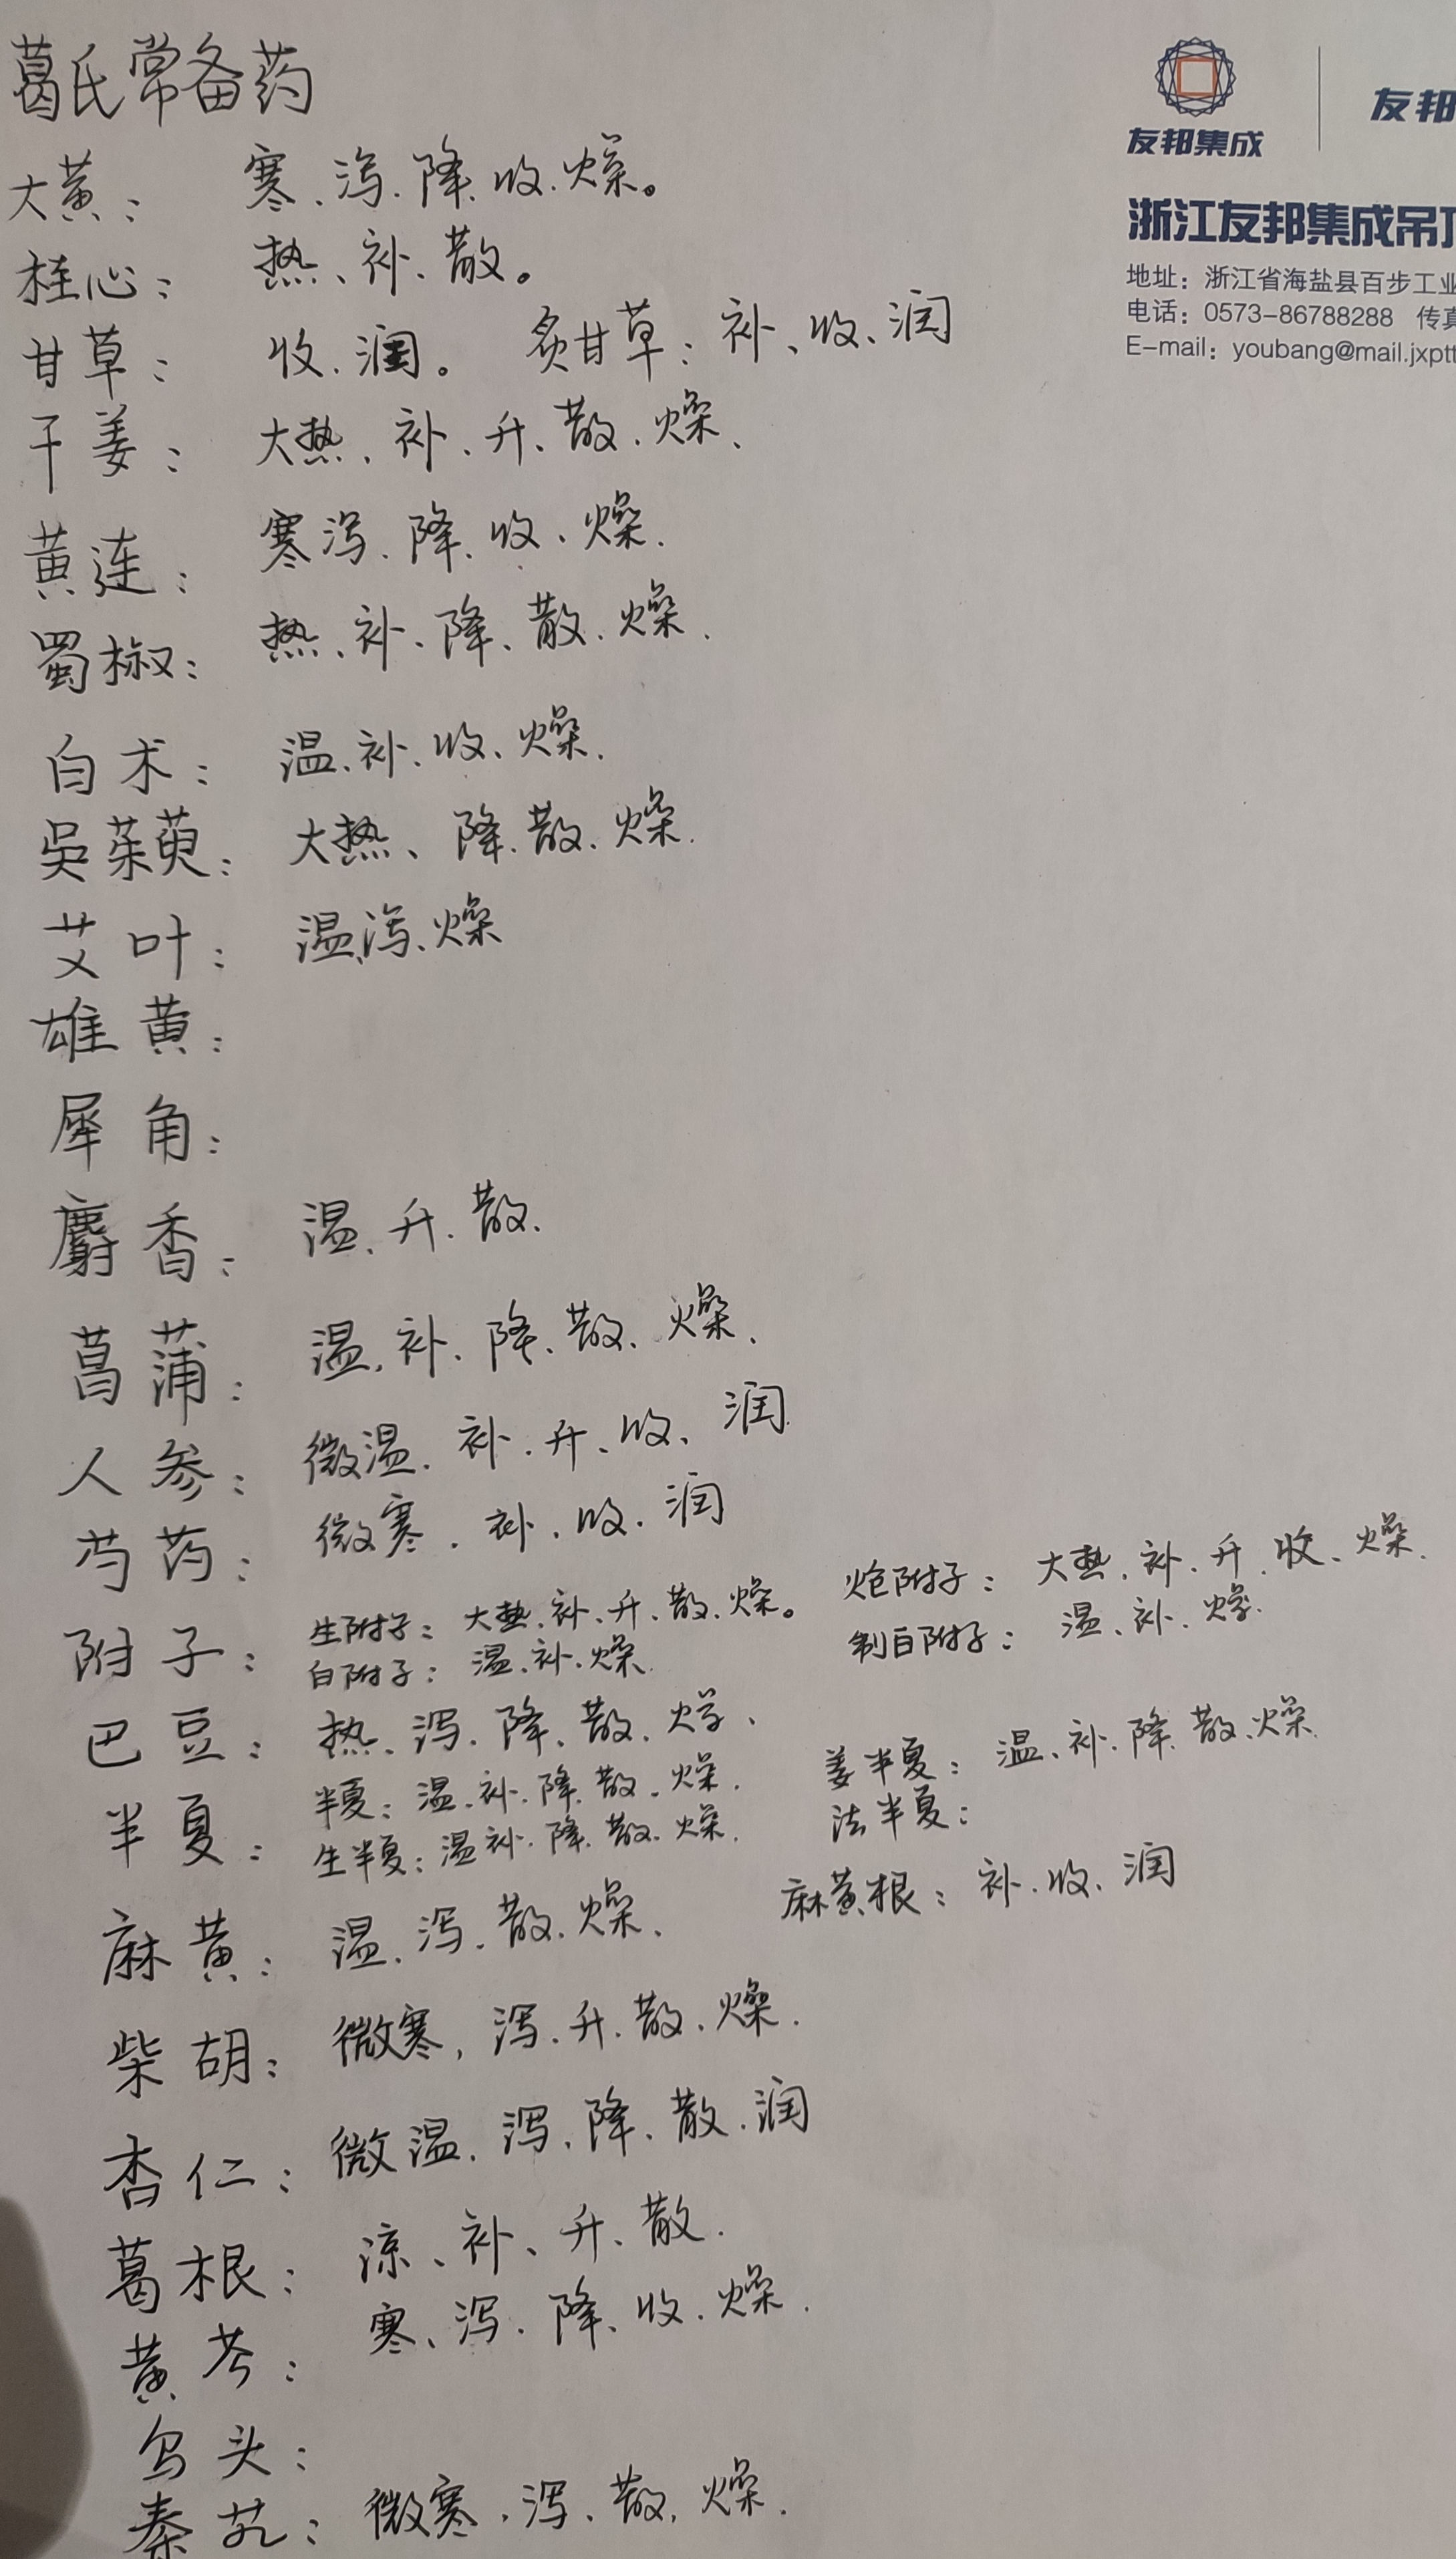 葛氏常备药
友邦集成
友邦
浙江友邦集成吊顶
地址：浙江省海盐县百步工业
电话：0573-86788288 传真
E-mail：youbang@mail.jxptt
大黄： 寒、泻、降、收、燥。
桂心： 热、补、散。
甘草： 收、润。 炙甘草：补、收、润
干姜： 大热、补、升、散、燥、
黄连： 寒泻、降、收、燥.
蜀椒： 热、补、降、散、燥.
白术： 温、补、收、燥.
吴茱萸： 大热、降、散、燥.
艾叶： 温、泻、燥
雄黄：
犀角：
麝香： 温、升、散.
菖蒲： 温、补、降、散、燥.
人参： 微温、补、升、收、润
芍药： 微寒、补、收、润
附子： 生附子：大热、补、升、散、燥。 炮附子：大热、补、升、收、燥.
白附子：温、补、燥 制白附子：温、补、燥.
巴豆： 热、泻、降、散、燥、
半夏： 半夏：温、补、降、散、燥. 姜半夏：温、补、降、散、燥.
生半夏：温补、降、散、燥. 法半夏：
麻黄： 温、泻、散、燥、 麻黄根：补、收、润
柴胡： 微寒，泻、升、散、燥.
杏仁： 微温、泻、降、散、润
葛根： 凉、补、升、散.
黄芩： 寒、泻、降、收、燥.
乌头：
秦艽： 微寒、泻、散、燥.